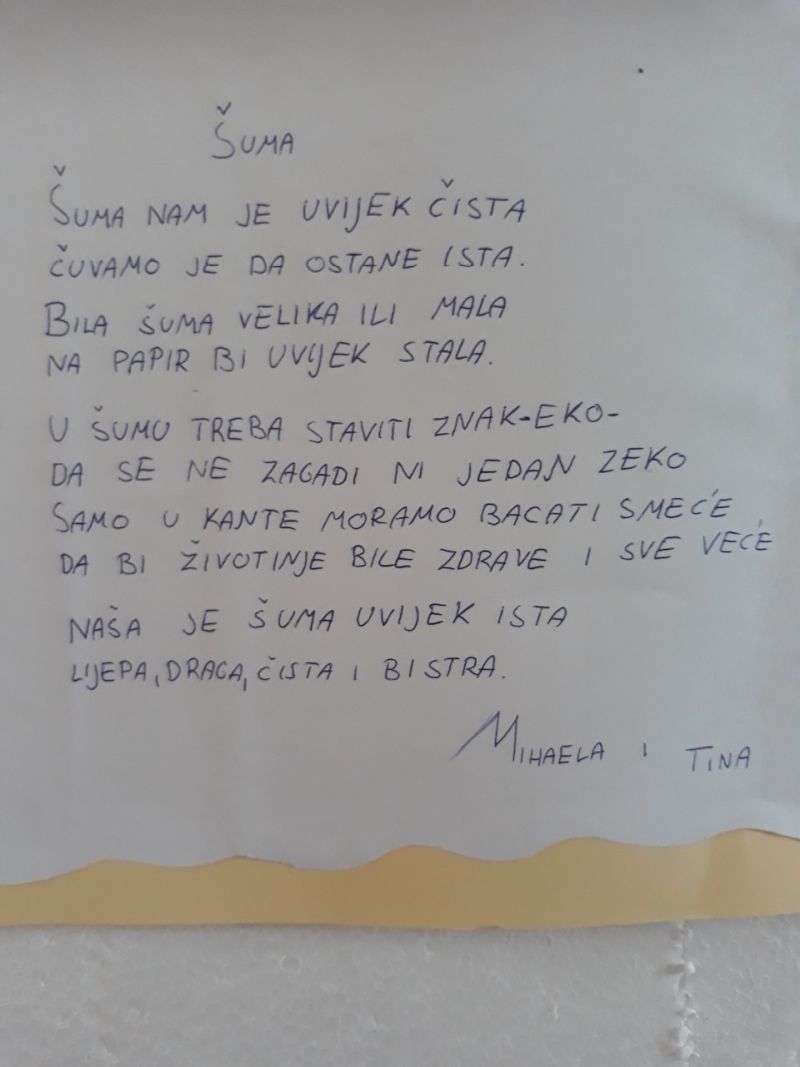 ŠUMA
ŠUMA NAM JE UVIJEK ČISTA
ČUVAMO JE DA OSTANE ISTA.
BILA ŠUMA VELIKA ILI MALA
NA PAPIR BI UVIJEK STALA.
U ŠUMU TREBA STAVITI ZNAK-EKO-
DA SE NE ZAGADI NI JEDAN ZEKO
SAMO U KANTE MORAMO BACATI SMEĆE
DA BI ŽIVOTINJE BILE ZDRAVE I SVE VEĆE
NAŠA JE ŠUMA UVIJEK ISTA
LIJEPA, DRAGA, ČISTA I BISTRA.
MIHAELA I TINA